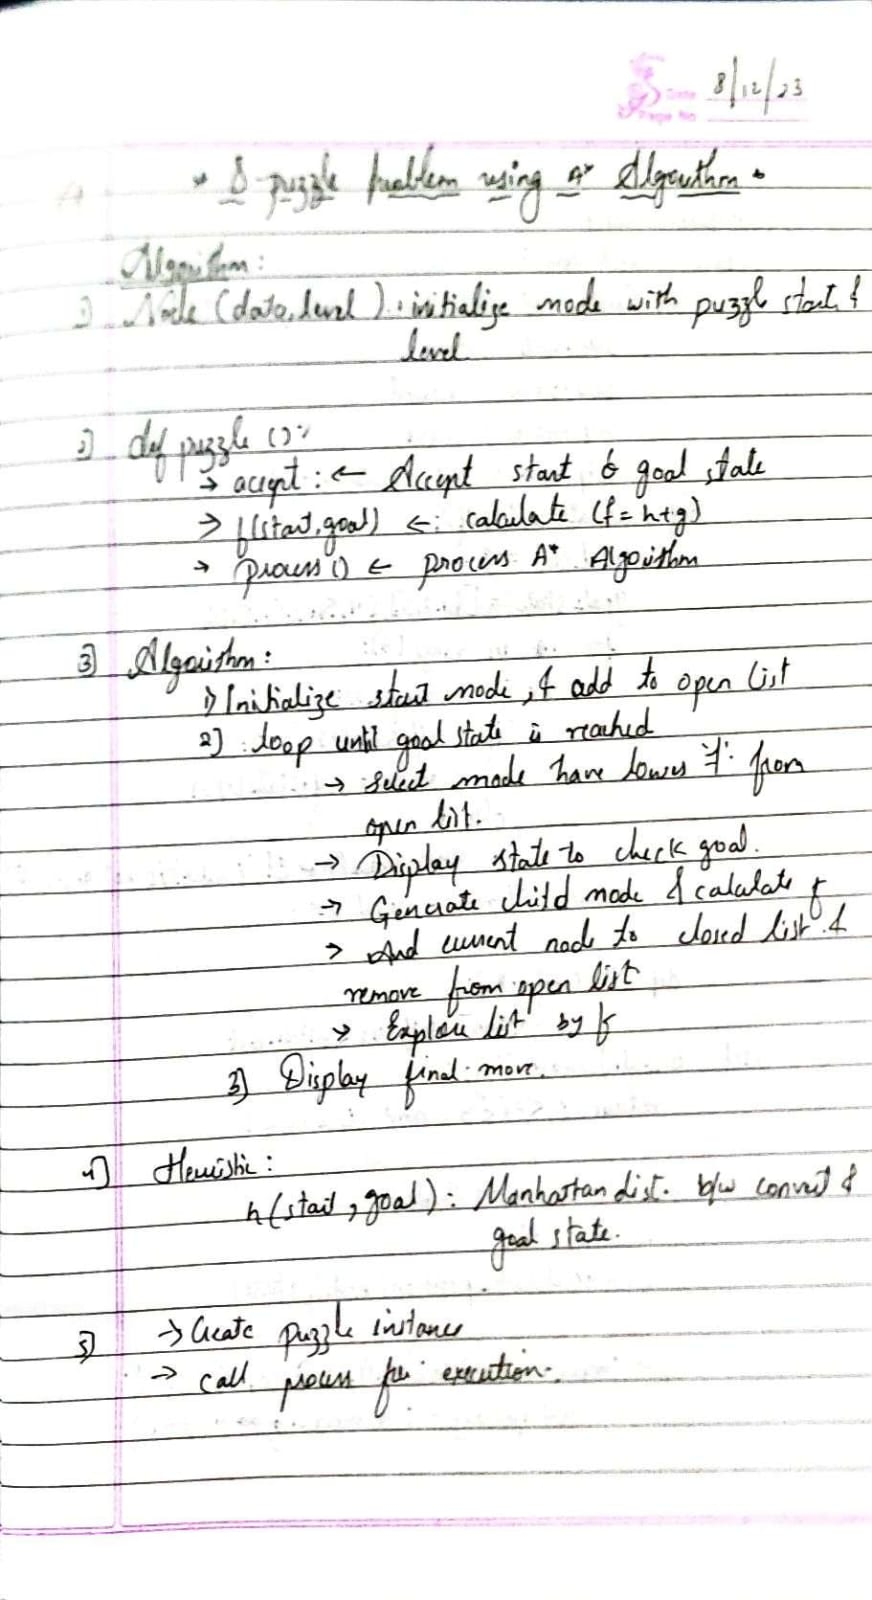 Date 8/12/23
Page No
* 8-puzzle problem using A* Algorithm.
Algorithm:
1) Node (data, level) : initialize node with puzzle start &
level
2) def puzzle ():
→ accept : ← Accept start & goal state
→ f(start, goal) ←: calculate (f = h+g)
→ process () ← process A* Algorithm
3) Algorithm:
1) Initialize start node, & add to open list
2) loop until goal state is reached
→ Select node have lowes 'f' from
open list.
→ Display state to check goal.
→ Generate child node & calculate f
→ And current node to closed list &
remove from open list
→ Explore list by f
3) Display final move.
4) Heuristic:
h(start, goal): Manhattan dist. b/w &
goal state.
5) → Create puzzle instance
→ call process for execution.